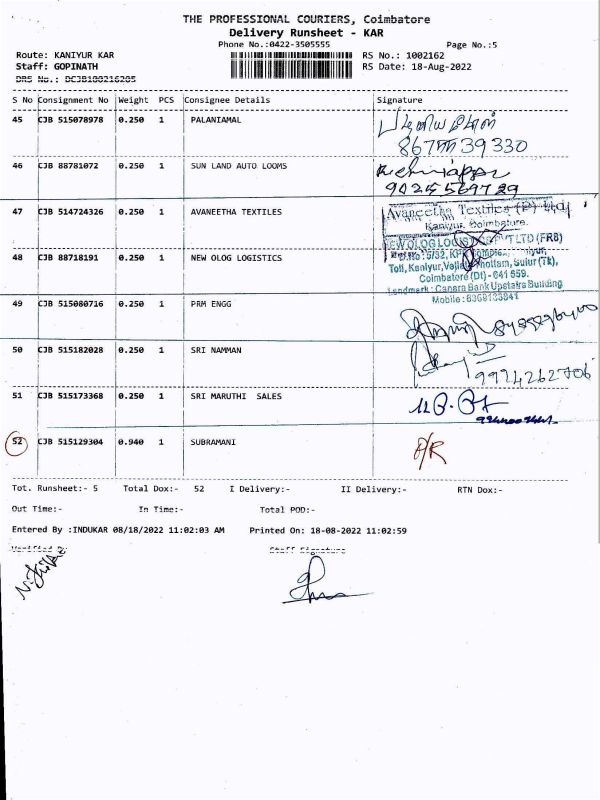 THE PROFESSIONAL COURIERS, Coimbatore
Delivery Runsheet - KAR
Phone No.:0422-3505555
Page No.:5
Route: KANIYUR KAR
RS No.: 1002162
Staff: GOPINATH
RS Date: 18-Aug-2022
DRS No.: DCJB180216205
S No Consignment No Weight PCS Consignee Details Signature
45 CJB 515078978 0.250 1 PALANIAMAL
46 CJB 88781072 0.250 1 SUN LAND AUTO LOOMS
47 CJB 514724326 0.250 1 AVANEETHA TEXTILES
Avaneetha Textiles (P) Ltd
Kaniyur, Coimbatore.
48 CJB 88718191 0.250 1 NEW OLOG LOGISTICS
Coimbatore (Dt) - 641 659.
Landmark : Canara Bank Upstairs Building
49 CJB 515080716 0.250 1 PRM ENGG
50 CJB 515182028 0.250 1 SRI NAMMAN
9994262706
51 CJB 515173368 0.250 1 SRI MARUTHI SALES
52 CJB 515129304 0.940 1 SUBRAMANI
Tot. Runsheet:- 5 Total Dox:- 52 I Delivery:- II Delivery:- RTN Dox:-
Out Time:- In Time:- Total POD:-
Entered By :INDUKAR 08/18/2022 11:02:03 AM Printed On: 18-08-2022 11:02:59
Staff Signature